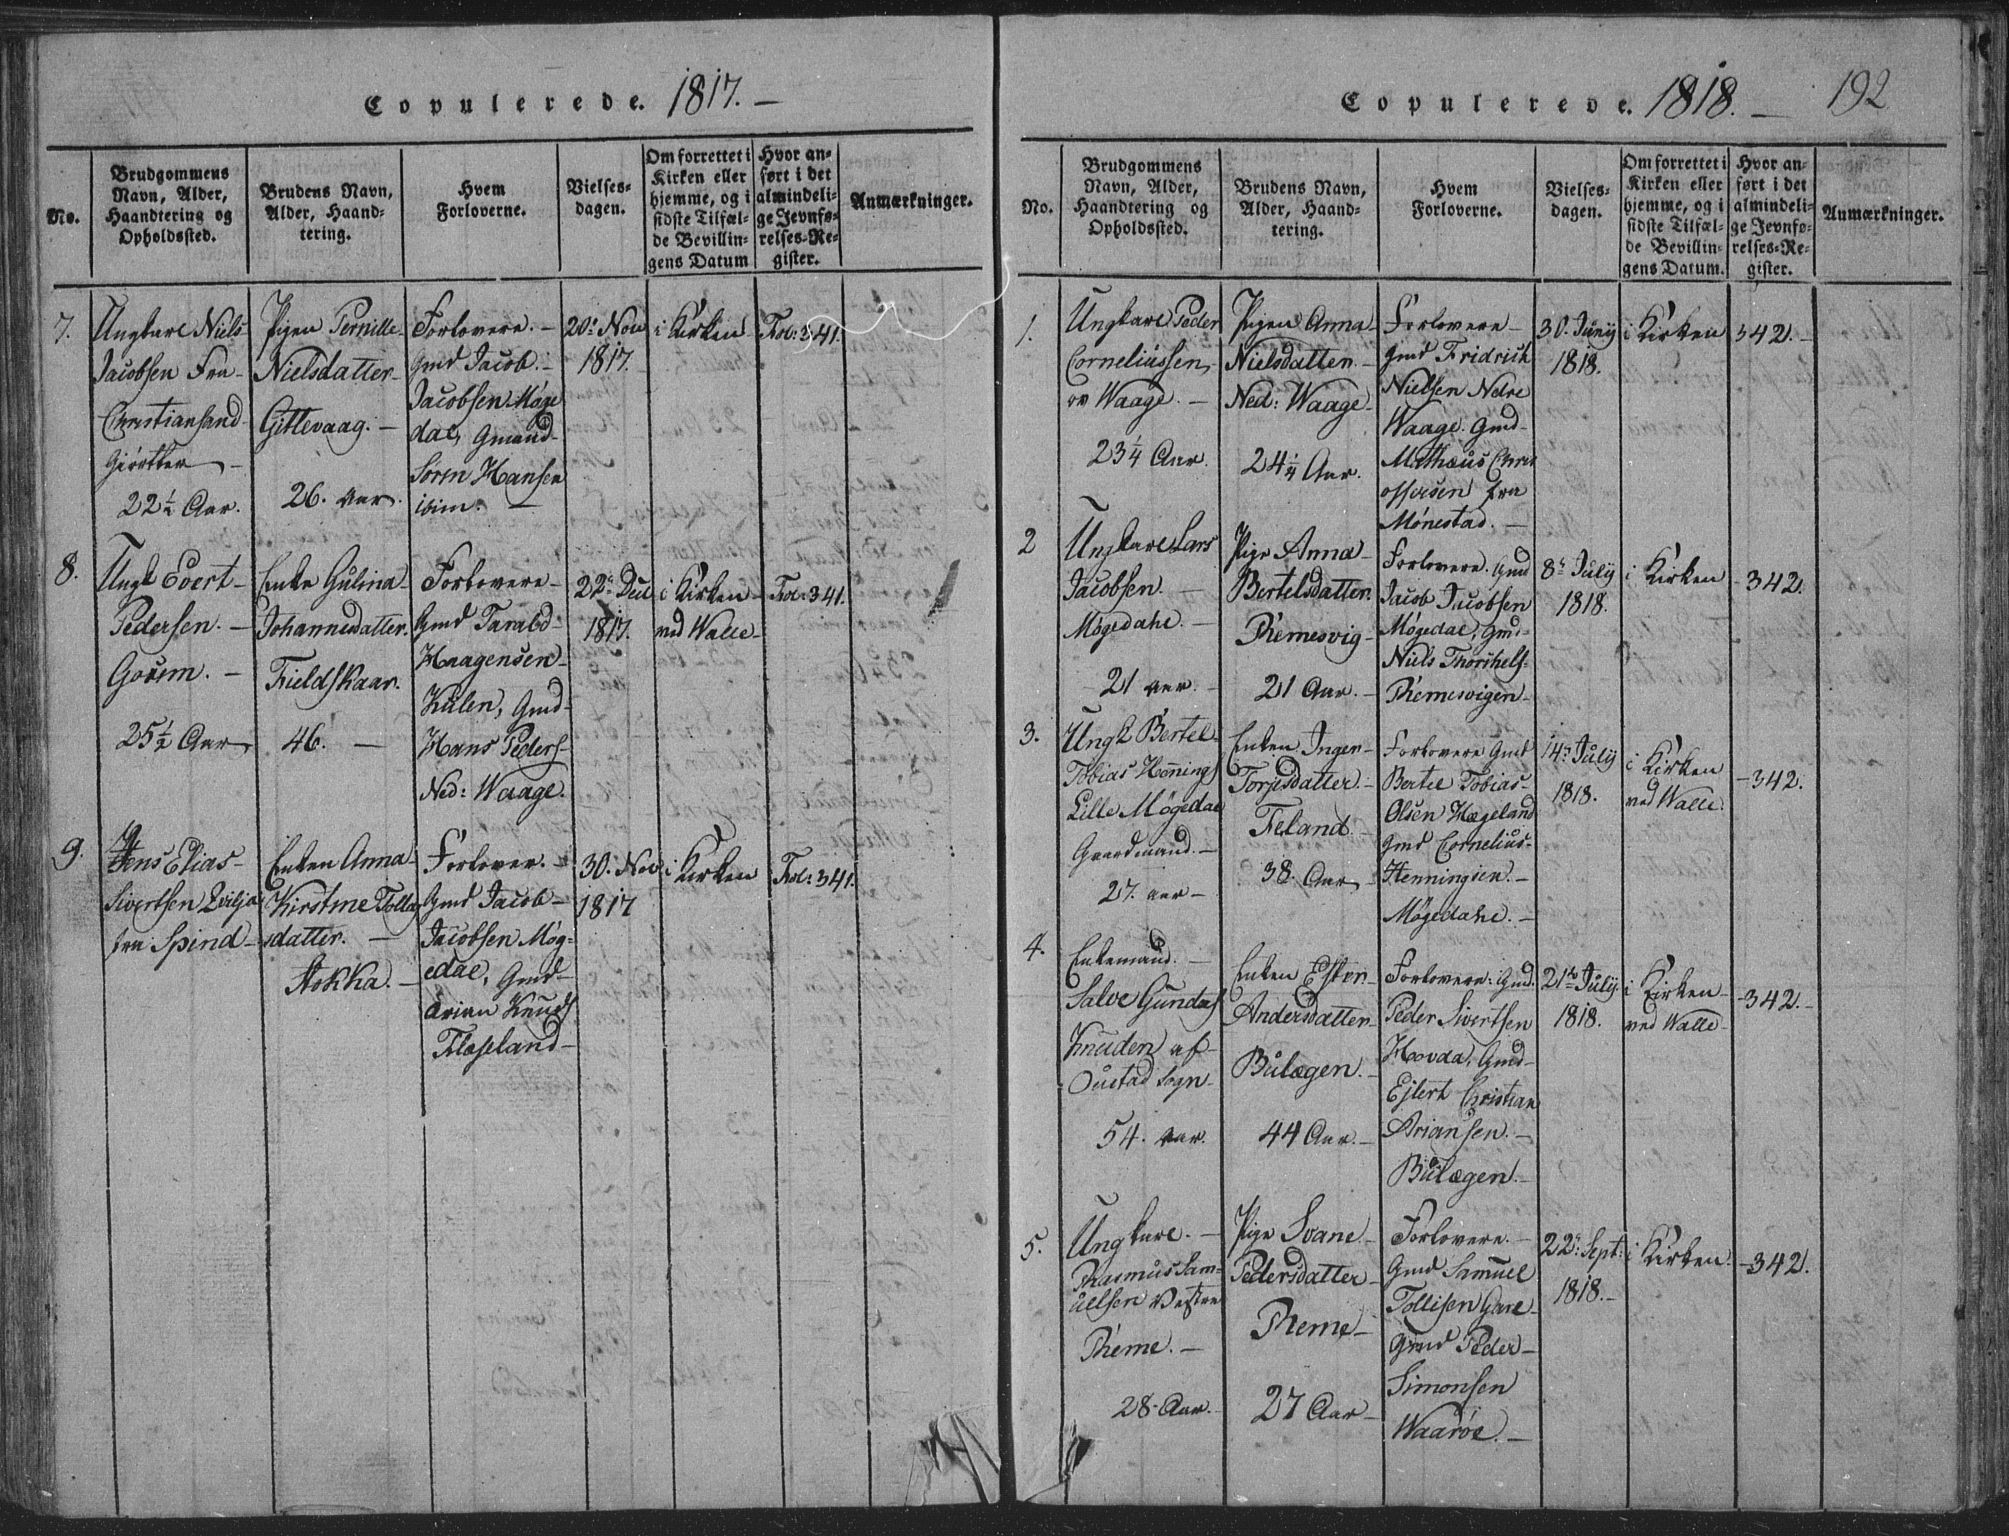 Copulerede. 1817. —
No.
Brudgommens
Navn, Alder,
Haandtering og
Opholdssted.
Brudens Navn,
Alder, Haand-
tering.
Hvem
Forloverne.
Vielses-
dagen.
Om forrettet i
Kirken eller
hjemme, og i
sidste Tilfæl-
de Bevillin-
gens Datum
Hvor an-
ført i det
almindeli-
ge Jevnfø-
relses-Re-
gister.
Anmærkninger.
7.
Ungkarl Niels
Jacobsen Fra
Christiansand
22½ Aar.
Pigen Pernille
Nielsdatter
Gittevaag. —
26. Aar.
Forlovere. —
Gmd Jacob
Jacobsen Møge
dal, Gmand
Sørn Hansen
ibim. —
20de Nov
1817.
i Kirken
Fol: 341.
8.
Ungk Evert
Pedersen. —
Gosem. —
25½ Aar
Enke Gulina
Johannesdatter.
Fieldskaar.
46. —
Forlovere
Gmd Tarald
Haagensen
Kulen, Gmd
Hans Peders
Ned: Waage.
22de Dec
1817.
i Kirken
ved Walle
Fol: 341.
9.
Jens Elias
Sivertsen
fra Spind
Enken Anna
Kirstine Tolla
sdatter. —
Stokka. —
Forlover. —
Gmd Jacob
Jacobsen Møg-
edal, Gmd
Arian Knuds
Floseland
30. Nov
1817
i Kirken
Fol: 341.
Copulerede. 1818. — 192
No.
Brudgommens
Navn, Alder,
Haandtering og
Opholdssted.
Brudens Navn,
Alder, Haand-
tering.
Hvem
Forloverne.
Vielses-
dagen.
Om forrettet i
Kirken eller
hjemme, og i
sidste Tilfæl-
de Bevillin-
gens Datum.
Hvor an-
ført i det
almindeli-
ge Jevnfø-
relses-Re-
gister.
Anmærkninger.
1.
Ungkarl Peder
Corneliussen
ov Waage. —
23¼ Aar.
Pigen Anna
Nielsdatter. —
Ned: Waage
24¼ Aar.
Forlovere
Gmd Fridrich
Nielsen Nedre
Waage. Gmd
Mathæus Chris
offersen fra
Mønestad. —
30. Juny
1818.
i Kirken
342. —
2
Ungkarl Lars
Jacobsen. —
Møgedahl. —
21 aar. —
Pige Anna
Bertelsdatter.
Remesvig
21 Aar. —
Forlovere. Gmd
Jacob Jacobsen
Møgedal, Gmd
Niels Thorkels-
Remesvigen
8de July
1818.
i Kirken
342.
3.
Ungk Bertel
Tobias Hennings
Lille Møgedal
Gaardmand. —
27. aar —
Enken Inger
Torjesdatter. —
Feland. —
38. Aar
Forlovere Gmd
Bertel Tobias
Olsen Hægeland
Gmd Cornelius
Henningsen. —
Møgedahl. —
14de July
1818.
i Kirken
ved Walle
342.
4.
Enkemand. —
Salve
Knuden af
Oustad Sogn
54. aar.
Enken Ester
Andersdatter
Bulægen. —
44 Aar. —
Forlovere: Gmd.
Peder Sivertsen
Hovda, Gmd
Ejlert Christian
Ariansen. —
Bulægen. —
21de July
1818.
i Kirken
ved Walle
342. —
5.
Ungkarl. —
Rasmus Sam-
uelsen Vestre
Reme. —
28 Aar. —
Pige Svane
Pedersdatter
Reme —
27 Aar
Forlovere. —
Gmd Samuel
Tollisen Gare
Gmd Peder
Simonsen
Waarøe. —
22de Sept:
1818. —
i Kirken.
342.